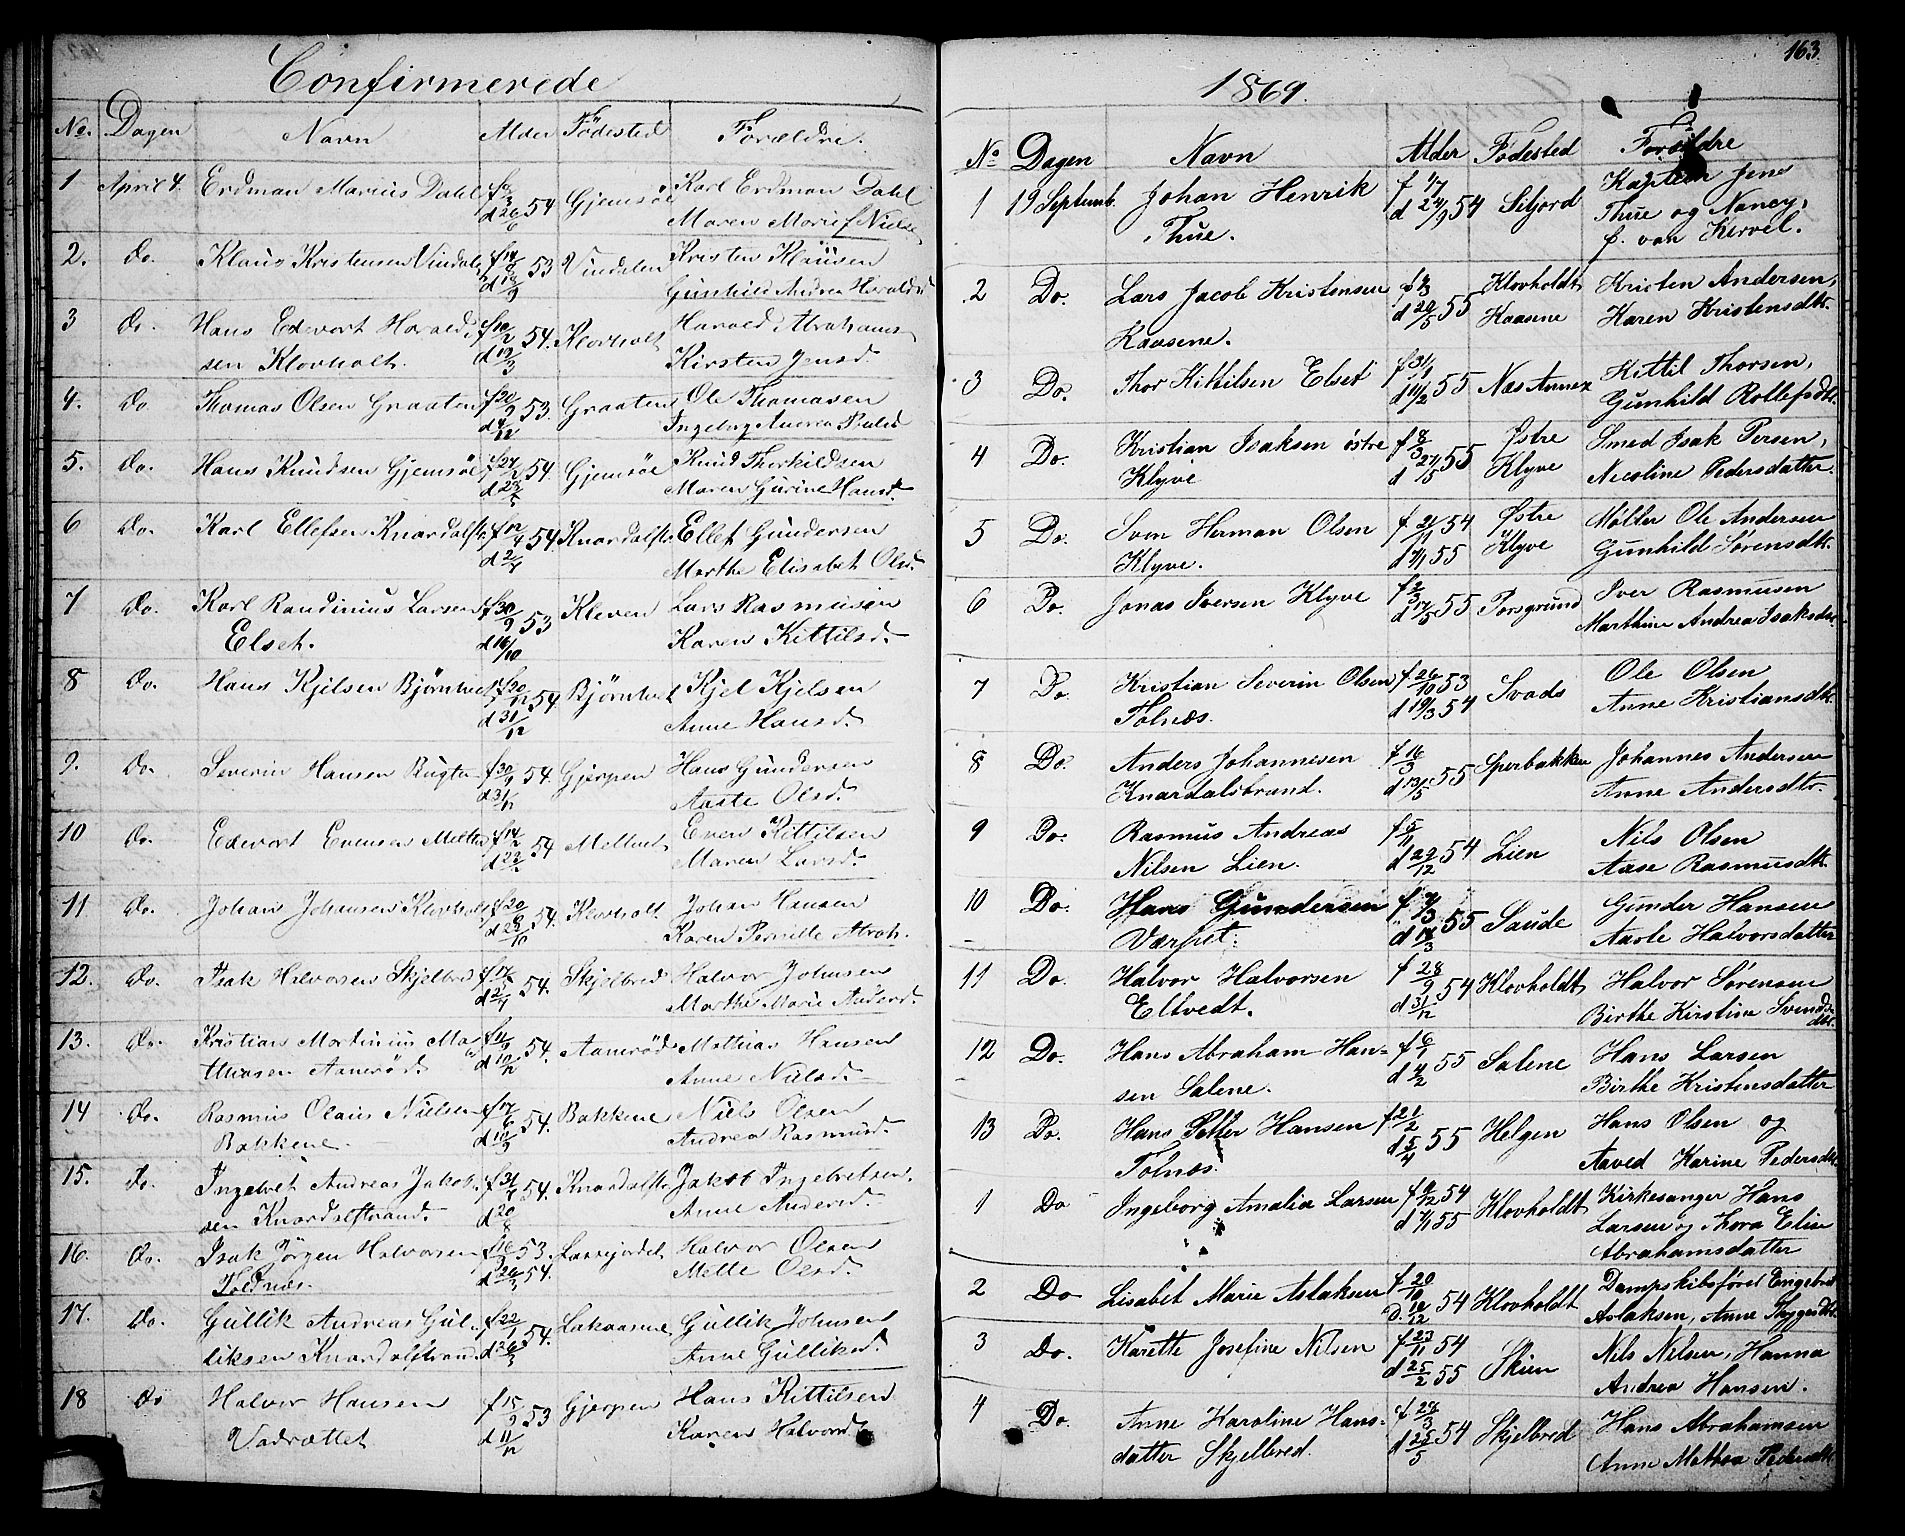 Confirmerede
No. Dagen Navn Alder Fødested Forældre.
1 April 4. Erdman Marius Dahl 54 Gjemsøe Karl Erdman Dahl
Maren Marie f Niels
2. Do. Klaus Kristensen Vindalen 53 Vindalen Kristen Klausen
Gunhild Andrea Haraldsd
3 Do. Hans Edvart Harald- f 10/2 54. Klovholt Harald Abrahams
sen Klovholt. d 12/3 Kirsten Jensd.
4. Do Thomas Olsen Graaten f 20/9 53. Graaten Ole Thomasen
d 4/12 Ingebrg Andrea Pauls
5. Do. Hans Knudsen Gjemsøe 54. Gjemsøe Knud Therkildsen
Maren Gurine Hansd.
6 Do. Karl Ellefsen Knardalstr. 54. Knardalstr. Ellef Gundersen
Marthe Elisabet Olsd.
7 Do. Karl Randinius Larsen f 30/9 53 Kleven Lars Rasmusen
Elset. d 16/10 Karen Kittilsd.
8 Do. Hans Kjelsen Bjørntvet f 20/12 54. Bjørntvet Kjel Kjelsen
d 31/12 Anne Hansd.
9. Do. Severin Hansen Bugta f 30/9 54. Gjerpen Hans Gundersen
d 31/12 Aaste Olsd.
10 Do. Edvart Evensen Melte f 14/2 54 Meltvet Even Kittilsen
Maren Larsd.
11 Do. Johan Johansen Klovholt 54. Klovholt. Johan Hansen
Karen Pernille Abrah.
12. Do. Isak Halvorsen Skjelbred 54. Skjelbred Halvor Johnsen
Marthe Marie Andersd.
13. Do. Kristian Martinius Ma- 54. Aamrød Mathias Hansen
thiasen Aamrød. Anne Nielsd.
14 Do. Rasmus Olaus Nielsen f 17/6 54. Bakkene Niels Olsen
Bakkene. d 10/9 Andrea Rasmusd.
15. Do. Ingebret Andreas Jakob- 54. Knardalstr. Jakob Ingebretsen.
sen Knardalstrand. d 20/8 Anne Andersd.
16. Do. Isak Jørgen Halvorsen 53. Lassejordet Halvor Olsen
Toldnæs. 54. Mette Olsd.
17. Do. Gullik Andreas Gul- f 22/1 54. Lakaasene Gullik Johnsen
liksen Knardalstrand d 26/3 Anne Gulliksd.
18 Do Halvor Hansen f 15/9 53 Gjerpen Hans Kittilsen
Vadrættet d 11/12 Karen Halvorsd.
163.
1869.
No Dagen Navn Alder Fødested Forældre
1 19 Septemb. Johan Henrik f 1/7 54 Siljord Kaptein Jens
Thue. d 24/9 Thue og Nancy,
f. van Kervel.
2 Do. Lars Jacob Kristensen 55 Klovholdt Kristen Andersen,
Kaasene. d 20/5 Kaasene Karen Kristensdtr.
3 Do. Thor Kittilsen Elset f 31/1 55 Næs Annex Kittil Thorsen,
d 11/2 Gunhild Rollefsdtr.
4 Do. Kristian Isaksen østre f 8/3 55 Østre Smed Isak Persen,
Klyve d 27/5 Klyve Nicoline Pedersdatter.
5 Do. Sven Herman Olsen 54 Østre Møller Ole Andersen
Klyve. 55 Klyve Gunhild Sørensdtr.
6 Do. Jonas Iversen Klyve f 2/3 55 Porsgrund Iver Rasmusen
d 17/5 Marthine Andrea Isaksdtr.
7 Do. Kristian Severin Olsen f 26/10 53 Svads Ole Olsen
Tolnæs. d 19/3 54 Anne Kristiansdtr.
8 Do. Anders Johannesen f 16/3 55 Sperbakken Johannes Andersen
Knardalstrand. d 13/5 Anne Andersdtr.
9 Do. Rasmus Andreas f 5/11 54 Lien Nils Olsen
Nilsen Lien. d 22/12 Aase Rasmusdtr.
10 Do. Hans Gundersen 55 Saude Gunder Hansen
Varpet. Aasle Halvorsdatter
11 Do. Halvor Halvorsen f 28/9 54 Klovholdt Halvor Sørensen
Eltvedt. d 31/12 Birthe Kirstine Svends
dtr.
12 Do. Hans Abraham Han- f 6/1 55 Salene Hans Larsen
sen Salene. d 4/2 Birthe Kristensdatter
13 Do. Hans Petter Hansen f 21/2 55 Helgen Hans Olsen og
Tolnæs. d 5/4 Aaved Karine Pedersdtr.
1 Do Ingeborg Amalia Larsen 54 Klovholdt Kirkesanger Hans
55 Larsen og Thora Elise
Abrahamsdatter
2 Do Lisabet Marie Aslaksen f 20/10 54 Klovholdt Dampskibsfører Engebret
Aslaksen, Anne
3 Do. Karette Josefine Nilsen f 23/11 54 Skien Nils Nilsen, Hanna
d 25/2 55 Andrea Hansen.
4 Do. Anne Karoline Hans- f 28/3 54 Skjelbred Hans Abrahamsen
datter Skjelbred. d 25/5 Anne Mathea Pedersdtr.